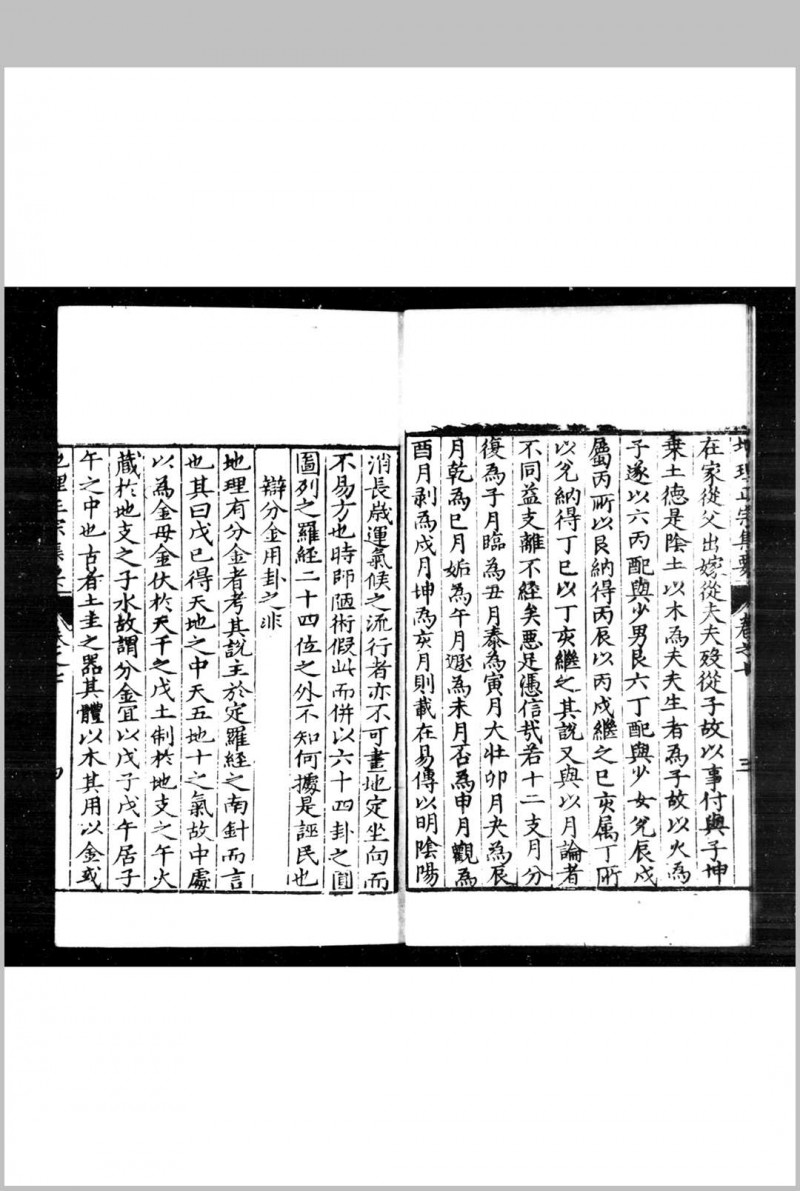 地理正宗集要 卷之七 三
在家從父出嫁從夫夫歿從子故以事付與子坤
棄土德是陰土以木為夫夫生者為子故以火為
子遂以六丙配與少男艮六丁配與少女兌辰戍
屬丙所以艮納得丙辰以丙戍繼之巳亥属丁所
以兌納得丁巳以丁亥繼之其說又與以月論者
不同益支離不經矣惡足憑信㢤若十二支月分
復為子月臨為丑月泰為寅月大壯卯月夬為辰
月乾為巳月姤為午月遯為未月否為申月觀為
酉月剥為戍月坤為亥月則載在易傳以明陰陽
消長歲運氣候之流行者亦不可畫地定坐向而
不易方也時師陋術假此而併以六十四卦之圓
圖列之羅經二十四位之外不知何據是誣民也
辯分金用卦之非
地理有分金者考其說主於定羅經之南針而言
也其曰戊巳得天地之中天五地十之氣故中處
以為金母金伏於天干之戊土制於地支之午火
藏於地支之子水故謂分金宜以戊子戊午居子
午之中也古者土圭之器其體以木其用以金或
地理正宗集要 卷之七